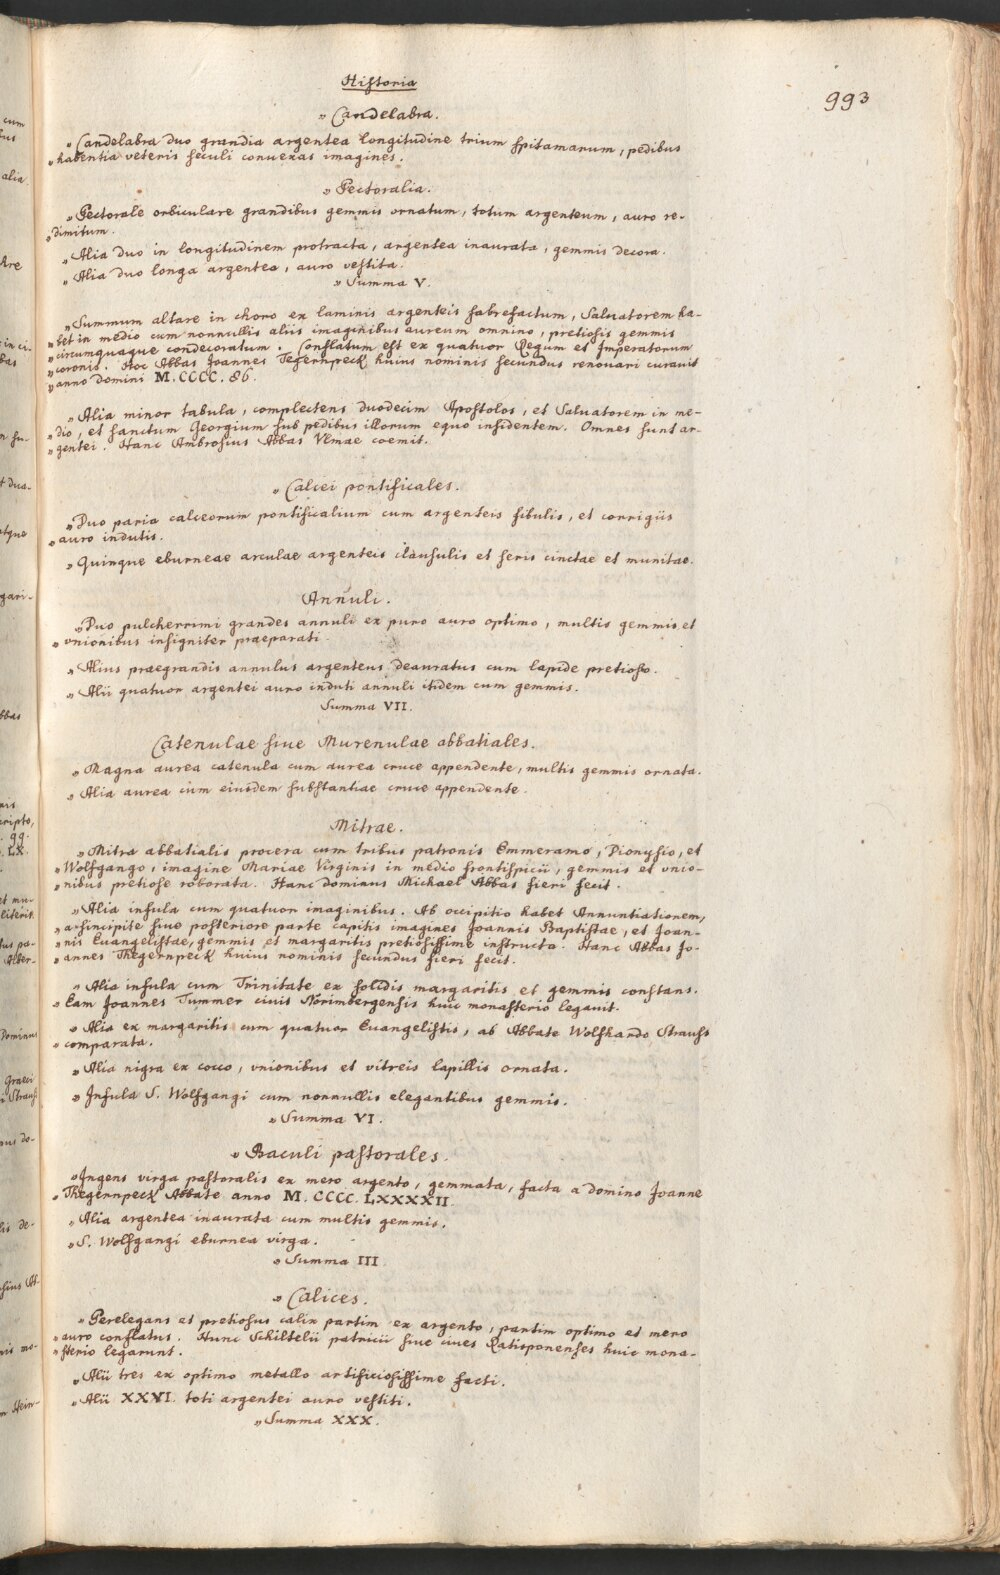 Historia
993
„ Candelabra.
„ Candelabra duo grandia argentea longitudine trium spitamarum, pedibus
„ habentia veteris seculi convexas imagines.
„ Pectoralia.
„ Pectorale orbiculare grandibus gemmis ornatum, totum argenteum, auro re-
„ dimitum.
„ Alia duo in longitudinem protracta, argentea inaurata, gemmis decora.
„ Alia duo longa argentea, auro vestita.
„ Summa V.
„ Summum altare in choro ex laminis argenteis fabrefactum, Salvatorem ha-
„ bet in medio cum nonnullis aliis imaginibus aureum omnino, pretiosis gemmis
„ circumquaque condecoratum. Conflatum est ex quatuor Regum et Imperatorum
„ coronis. Hoc Abbas Joannes Tegernpeck huius nominis secundus renovari curavit
„ anno Domini M. CCCC. 86.
„ Alia minor tabula, complectens duodecim Apostolos, et Salvatorem in me-
„ dio, et sanctum Georgium sub pedibus illorum equo insidentem. Omnes sunt ar-
„ gentei. Hanc Ambrosius Abbas Ulmae coemit.
„ Calcei pontificales.
„ Duo paria calceorum pontificalium cum argenteis fibulis, et corrigiis
„ auro indutis.
„ Quinque eburneae arculae argenteis clausulis et seris cinctae et munitae.
Annuli.
„ Duo pulcherrimi grandes annuli ex puro auro optimo, multis gemmis et
„ unionibus insigniter praeparati.
„ Alius praegrandis annulus argenteus deauratus cum lapide pretioso.
„ Alii quatuor argentei auro induti annuli itidem cum gemmis.
Summa VII.
Catenulae sive Murenulae abbatiales.
„ Magna aurea catenula cum aurea cruce appendente, multis gemmis ornata.
„ Alia aurea cum eiusdem substantiae cruce appendente.
Mitrae.
„ Mitra abbatialis procera cum tribus patronis Emmeramo, Dionysio, et
„ Wolfgango, imagine Mariae Virginis in medio frontispicii, gemmis et unio-
„ nibus pretiose roborata. Hanc dominus Michael Abbas fieri fecit.
„ Alia infula cum quatuor imaginibus. Ab occipitio habet Annuntiationem,
„ a sincipite sive posteriore parte capitis imagines Joannis Baptistae, et Joan-
„ nis Evangelistae, gemmis et margaritis pretiosissime instructa. Hanc Abbas Jo-
„ annes Thegernpeck huius nominis secundus fieri fecit.
„ Alia infula cum Trinitate ex solidis margaritis et gemmis constans.
„ Eam Joannes Tummer civis Norimbergensis huic monasterio legavit.
„ Alia ex margaritis cum quatuor Evangelistis, ab Abbate Wolfhardo Strauss
„ comparata.
„ Alia nigra ex cocco, unionibus et vitreis lapillis ornata.
„ Infula S. Wolfgangi cum nonnullis elegantibus gemmis.
„ Summa VI.
„ Baculi pastorales.
„ Ingens virga pastoralis ex mero argento, gemmata, facta a domino Joanne
„ Thegernpeck Abbate anno M. CCCC. LXXXXII.
„ Alia argentea inaurata cum multis gemmis.
„ S. Wolfgangi eburnea virga.
„ Summa III
„ Calices.
„ Perelegans et pretiosus calix partim ex argento, partim optimo et mero
„ auro conflatus. Hunc Schiltelii patricii sive cives Ratisponenses huic mona-
„ sterio legarunt.
„ Alii tres ex optimo metallo artificiosissime facti.
„ Alii XXVI. toti argentei auro vestiti.
„ Summa XXX.